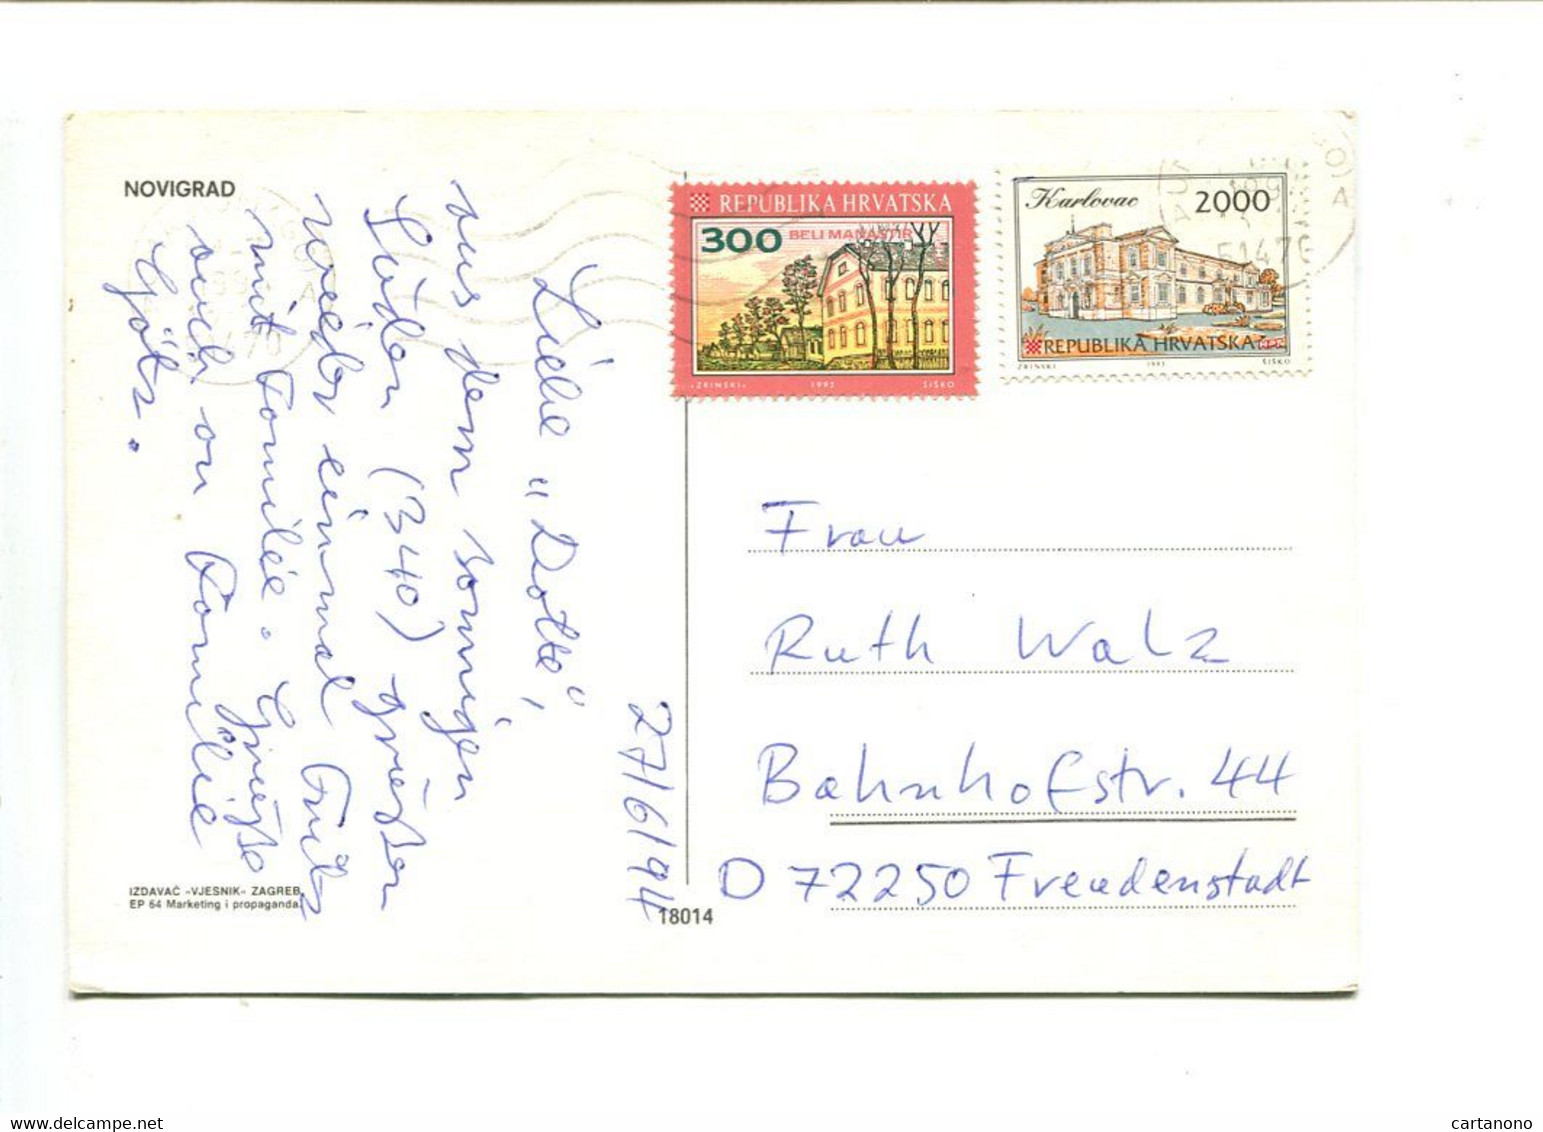 NOVIGRAD
27/6/94
Liebe "Dotte",
aus dem sonnigen
Süden (34°) grüßen
wieder einmal Fritz
mit Familie. Grüße
auch an Familie
Götz.
IZDAVAČ «VJESNIK» ZAGREB
EP 64 Marketing i propaganda
18014
REPUBLIKA HRVATSKA
300 BELI MANASTIR
«ZRINSKI» 1993 ŠIŠKO
Karlovac 2000
REPUBLIKA HRVATSKA
ZRINSKI 1993 ŠIŠKO
51476
A
Frau
Ruth Walz
Bahnhofstr. 44
D 72250 Freudenstadt
cartanono